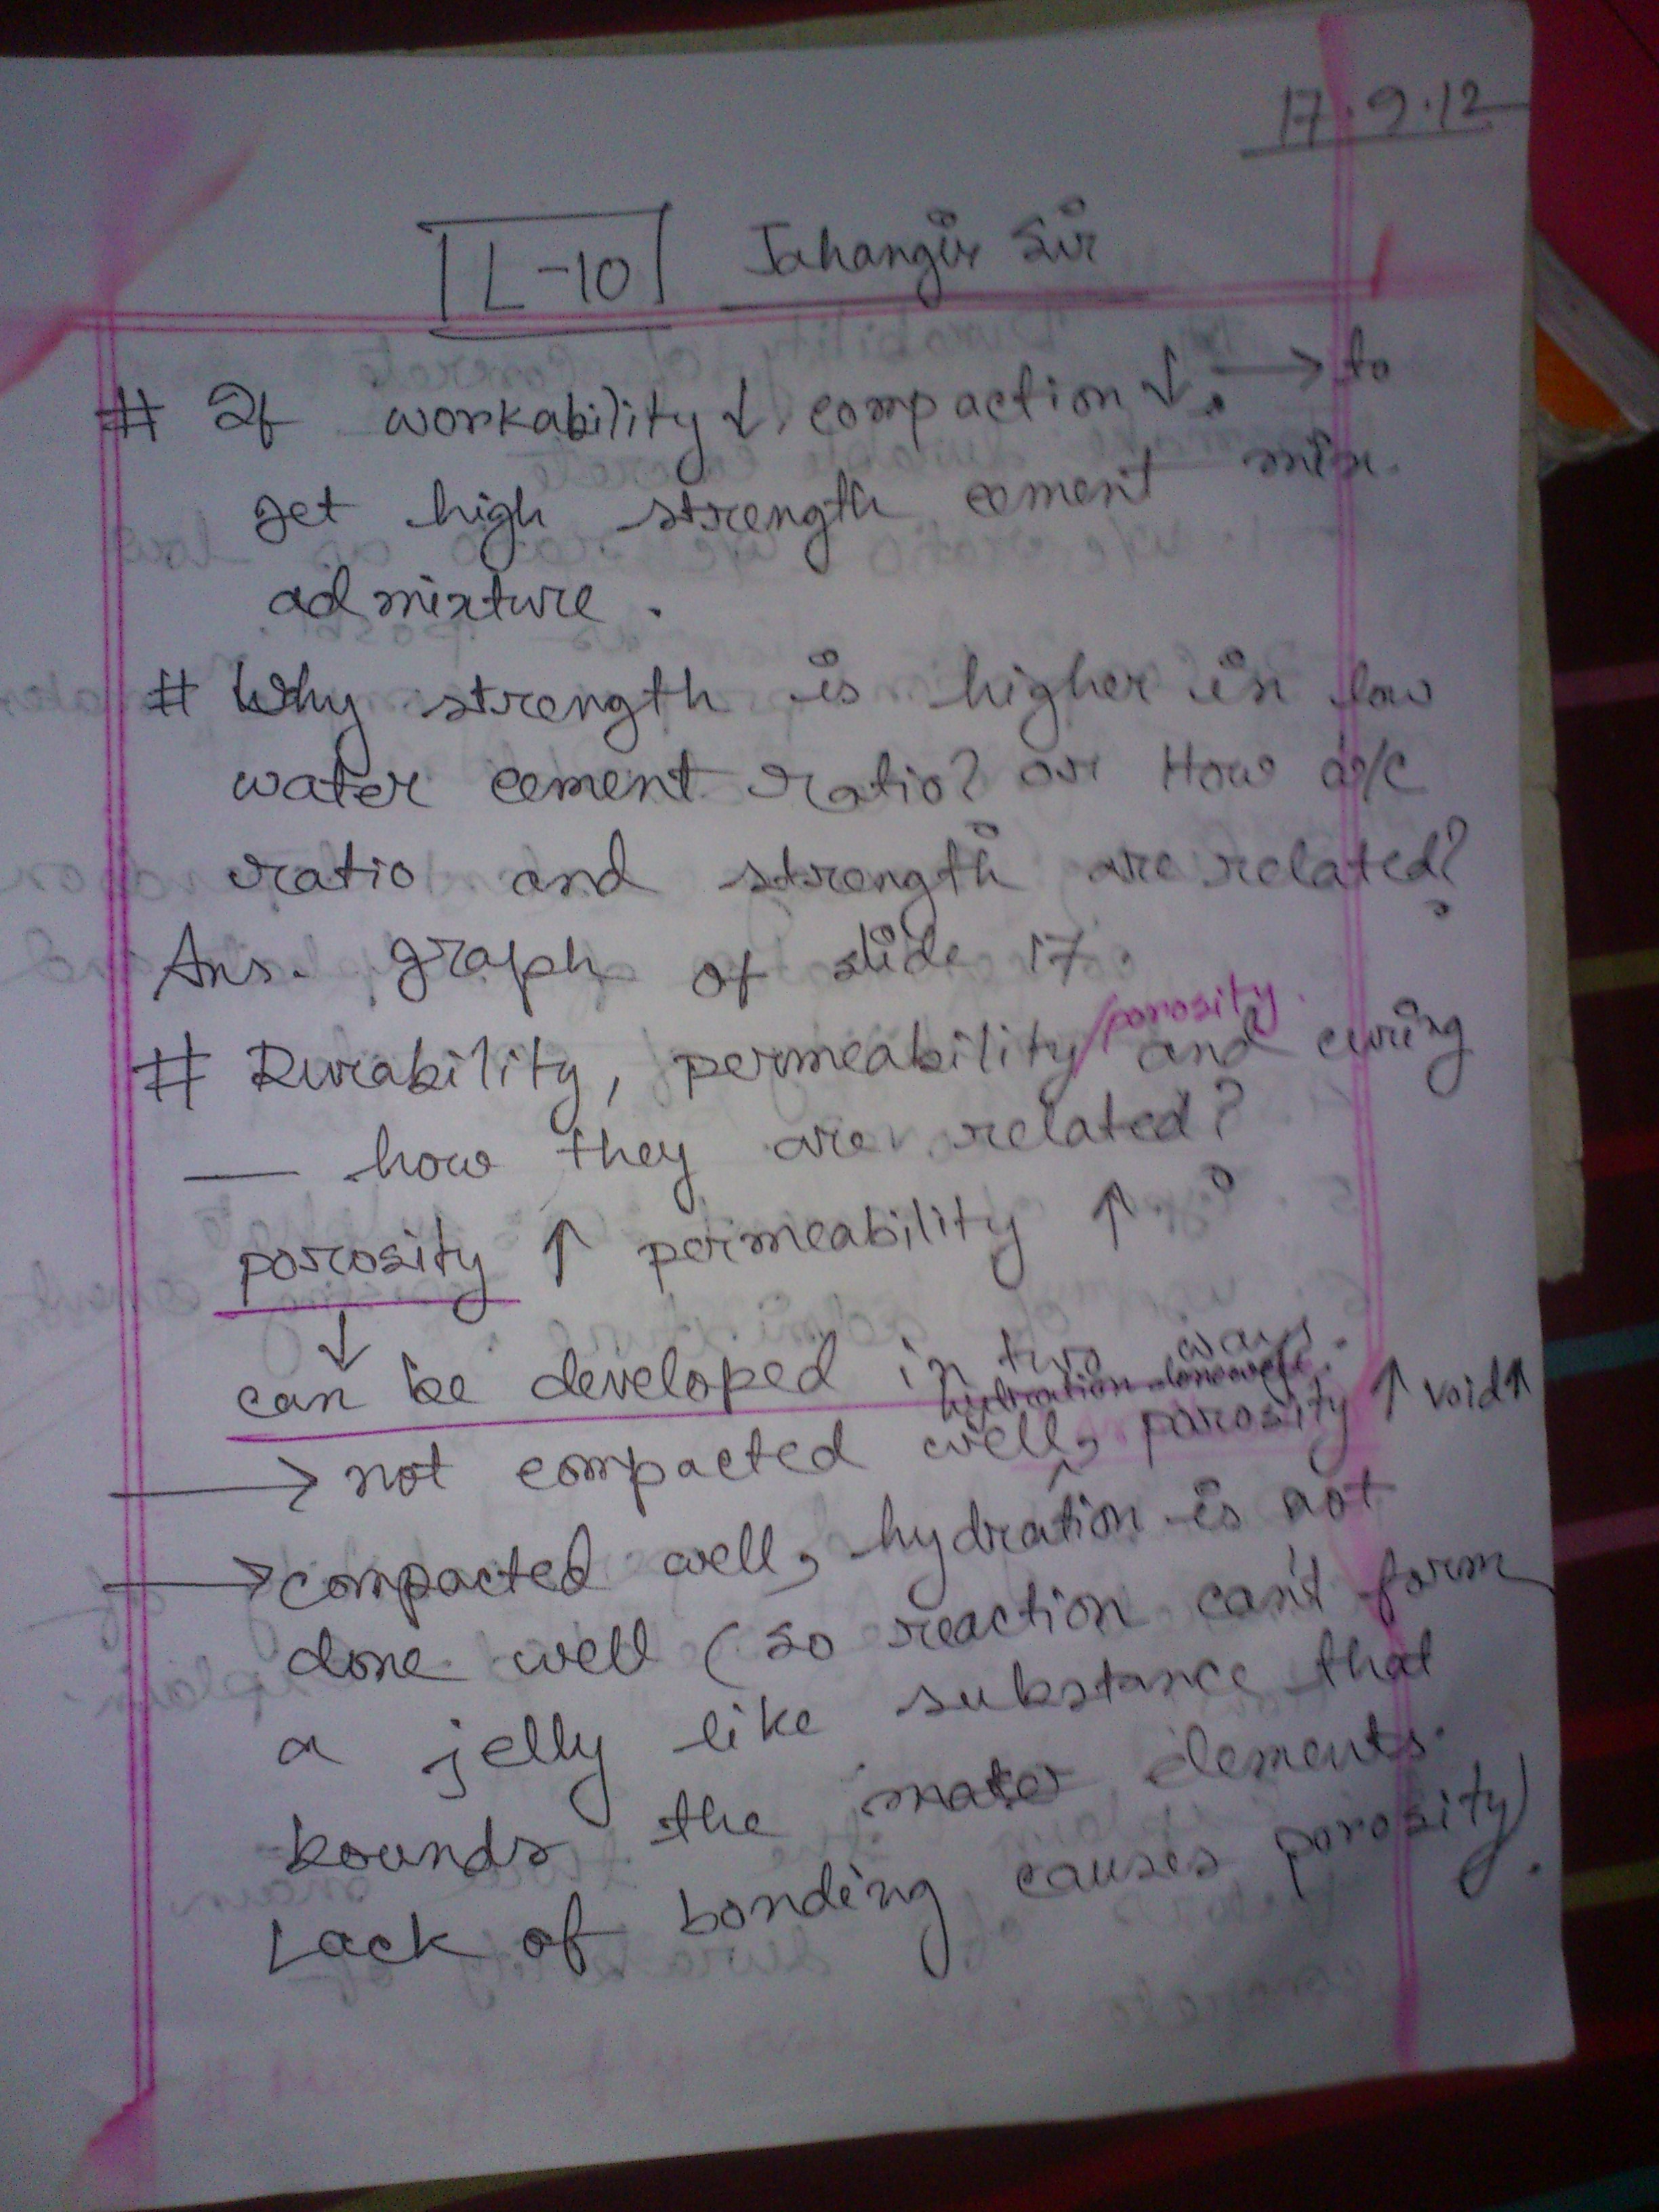 17.9.12
L-10 Jahangir Sir
# If workability ↓, compaction ↓. → to
get high strength cement mix
admixture.
# Why strength is higher in low
water cement ratio? or How w/c
ratio and strength are related?
Ans. graph of slide 17.
# Durability, permeability/porosity and curing
— how they are related?
porosity ↑ permeability ↑
↓
can be developed in two ways.
hydration done well,
→ not compacted well, porosity ↑ void ↑
→ compacted well, hydration is not
done well (so reaction can't form
a jelly like substance that
bounds the elements.
Lack of bonding causes porosity).